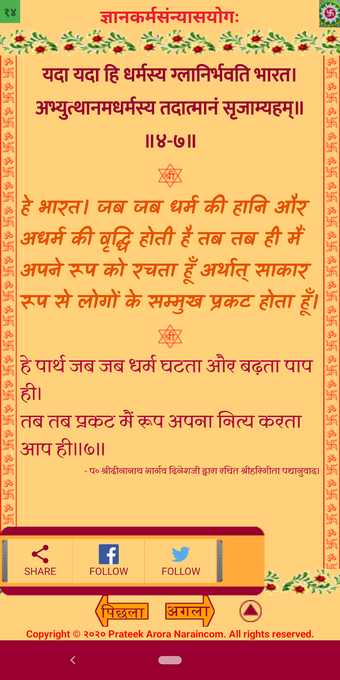 १४
ज्ञानकर्मसंन्यासयोगः
यदा यदा हि धर्मस्य ग्लानिर्भवति भारत।
अभ्युत्थानमधर्मस्य तदात्मानं सृजाम्यहम्॥
॥४-७॥
श्री
हे भारत। जब जब धर्म की हानि और
अधर्म की वृद्धि होती है तब तब ही मैं
अपने रूप को रचता हूँ अर्थात् साकार
रूप से लोगों के सम्मुख प्रकट होता हूँ।
श्री
हे पार्थ जब जब धर्म घटता और बढ़ता पाप
ही।
तब तब प्रकट मैं रूप अपना नित्य करता
आप ही॥७॥
- प० श्रीदीनानाथ भार्गव दिनेशजी द्वारा रचित श्रीहरिगीता पद्यानुवाद।
SHARE
FOLLOW
FOLLOW
पिछला
अगला
Copyright © २०२० Prateek Arora Naraincom. All rights reserved.